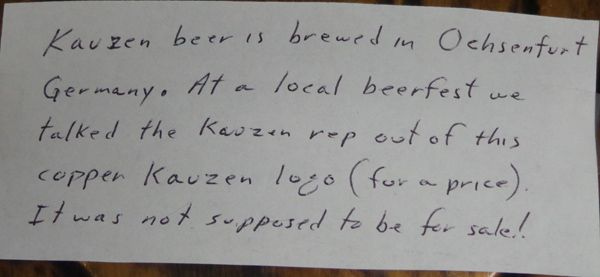 Kauzen beer is brewed in Ochsenfurt
Germany. At a local beerfest we
talked the Kauzen rep out of this
copper Kauzen logo (for a price).
It was not supposed to be for sale!